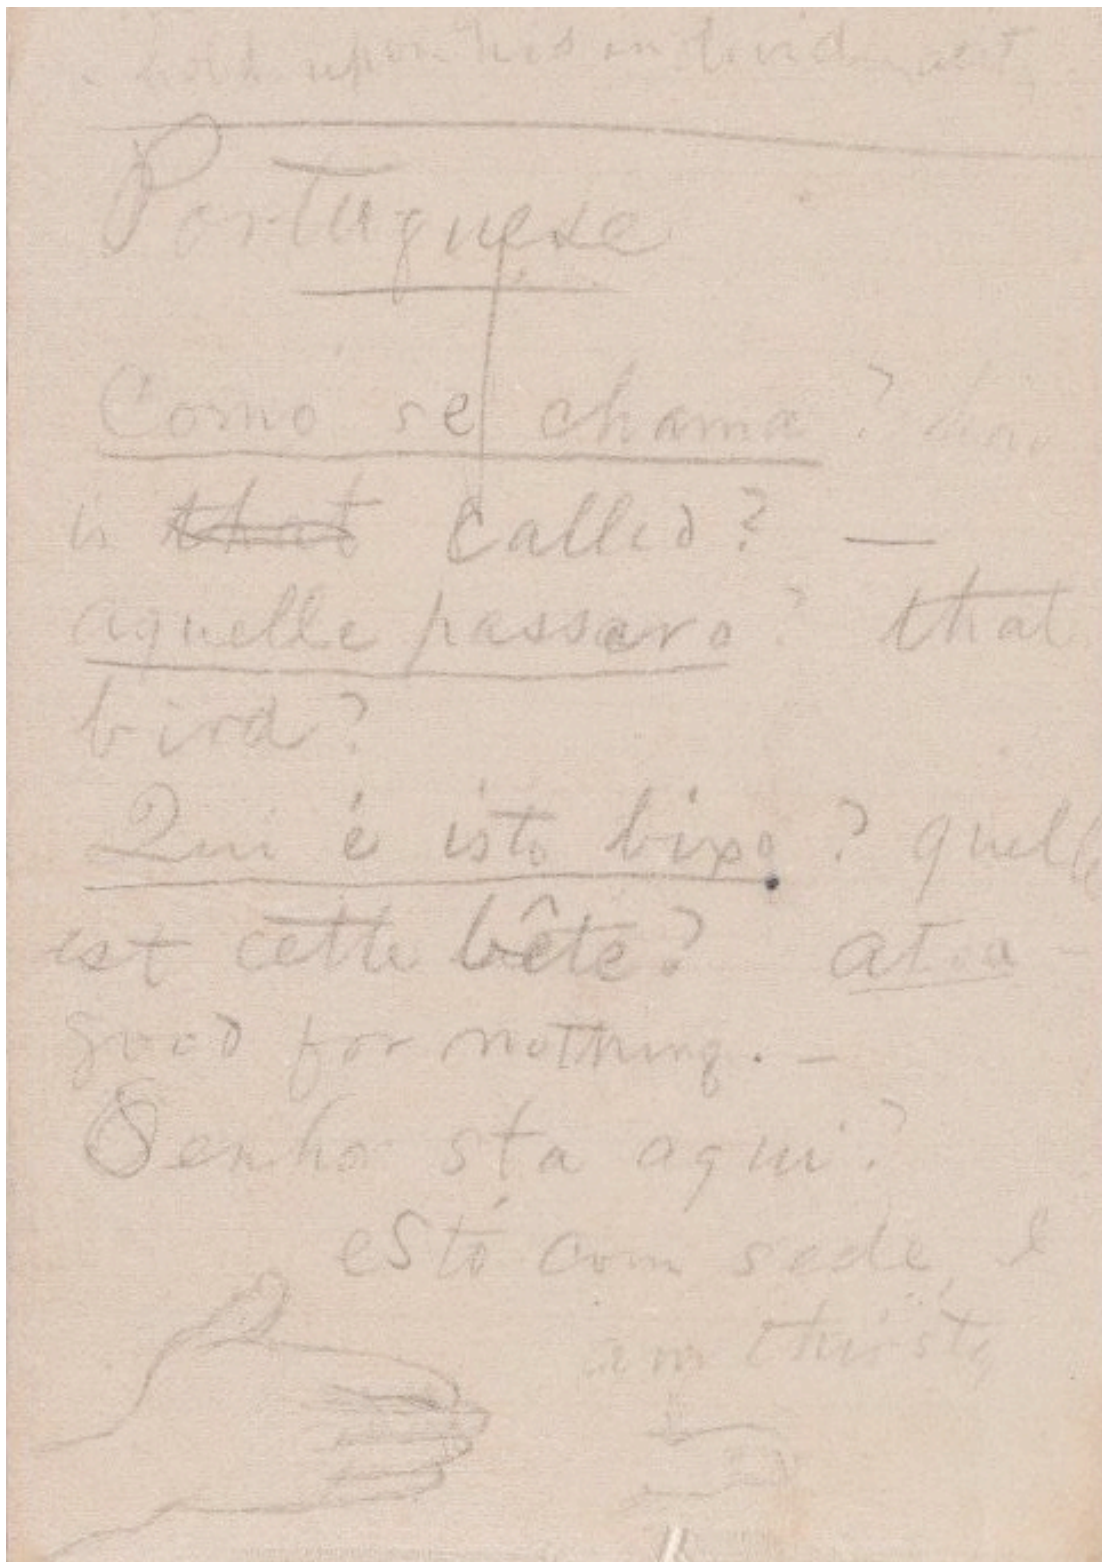 a hold upon his individuality.
Portuguese
Como se chama? how
is that called? —
aquelle passaro? that
bird?
Qui é isto bixo? quelle
est cette bête? atoa -
good for nothing. —
Senhor sta aqui?
estó com sede, I
am thirsty